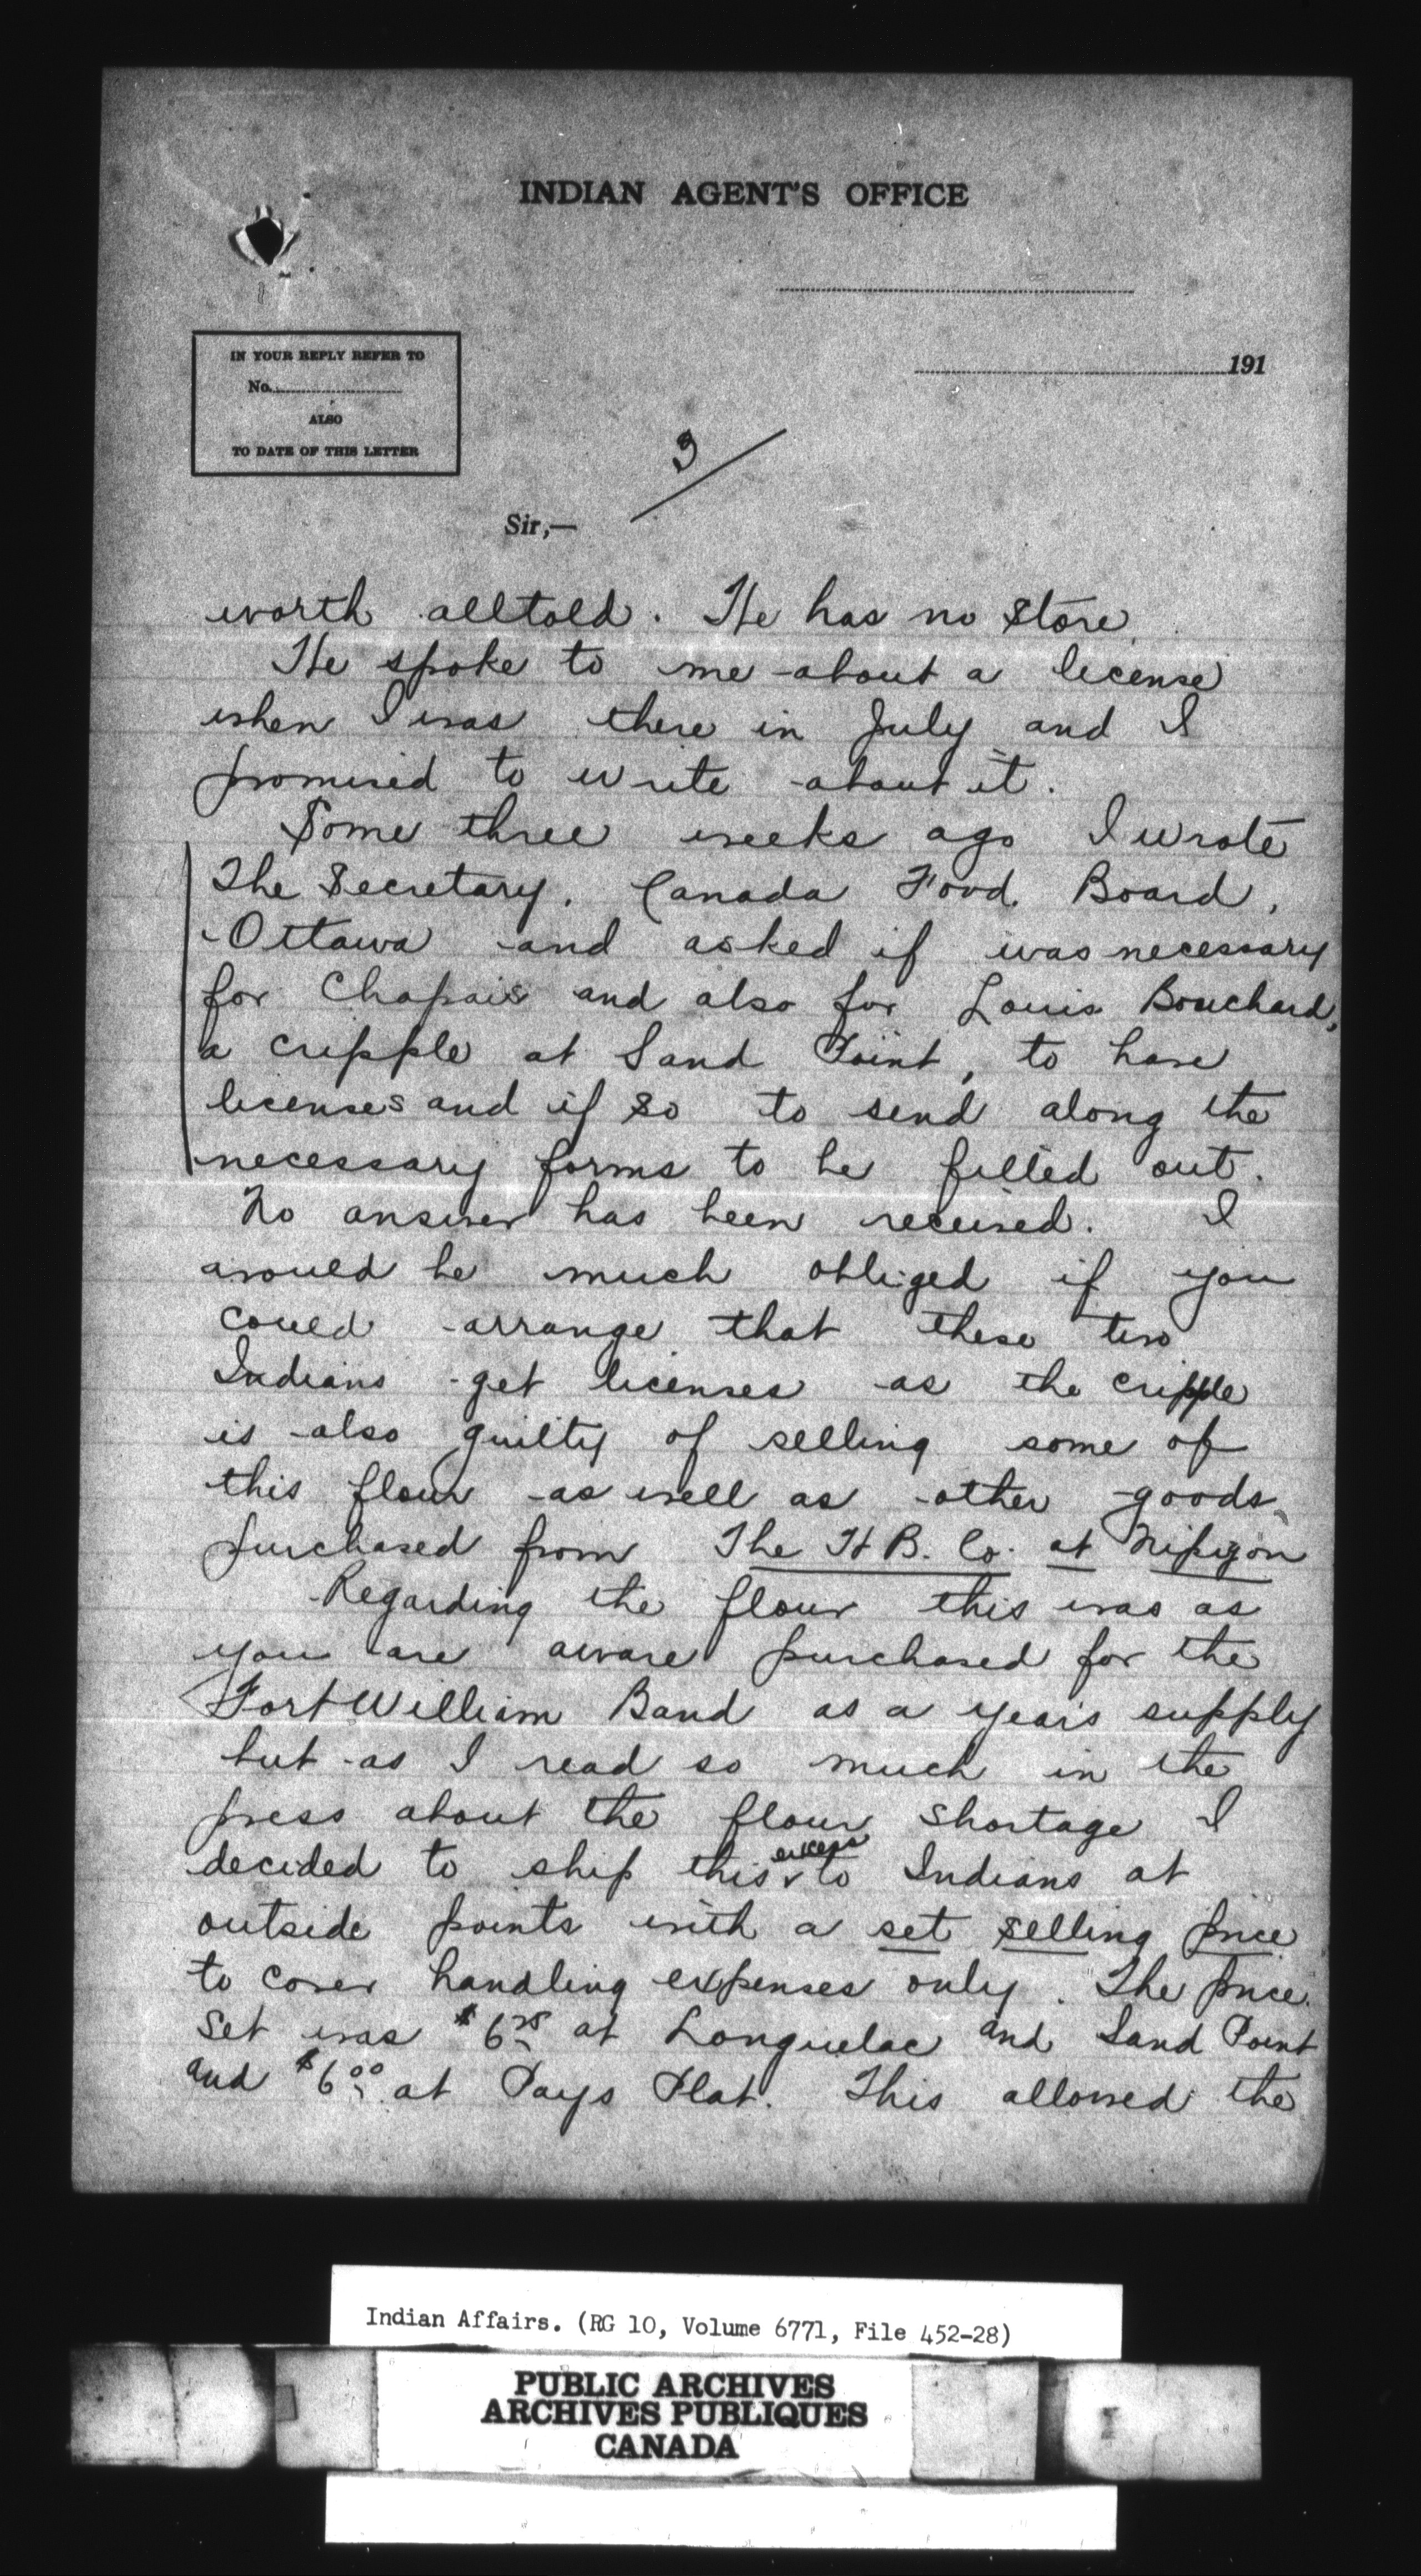 INDIAN AGENT'S OFFICE
191
IN YOUR REPLY REFER TO
No.
ALSO
TO DATE OF THIS LETTER
3
Sir,—
worth alltold. He has no store.
He spoke to me about a license
when I was there in July and I
promised to write about it.
Some three weeks ago I wrote
The Secretary, Canada Food Board,
Ottawa and asked if was necessary
for Chapais and also for Louis Bouchard,
a cripple at Sand Point, to have
licenses and if so to send along the
necessary forms to be filled out.
No answer has been received. I
would be much obliged if you
could arrange that these two
Indians get licenses as the cripple
is also guilty of selling some of
this flour as well as other goods
purchased from The H B. Co. at Nipigon
Regarding the flour this was as
you are aware purchased for the
Fort William Band as a years supply
but as I read so much in the
press about the flour shortage I
decided to ship this excess to Indians at
outside points with a set selling price
to cover handling expenses only. The price
set was $6 at Longuelac and Sand Point
and $6.00 at Pays Plat. This allowed the
Indian Affairs. (RG 10, Volume 6771, File 452-28)
PUBLIC ARCHIVES
ARCHIVES PUBLIQUES
CANADA